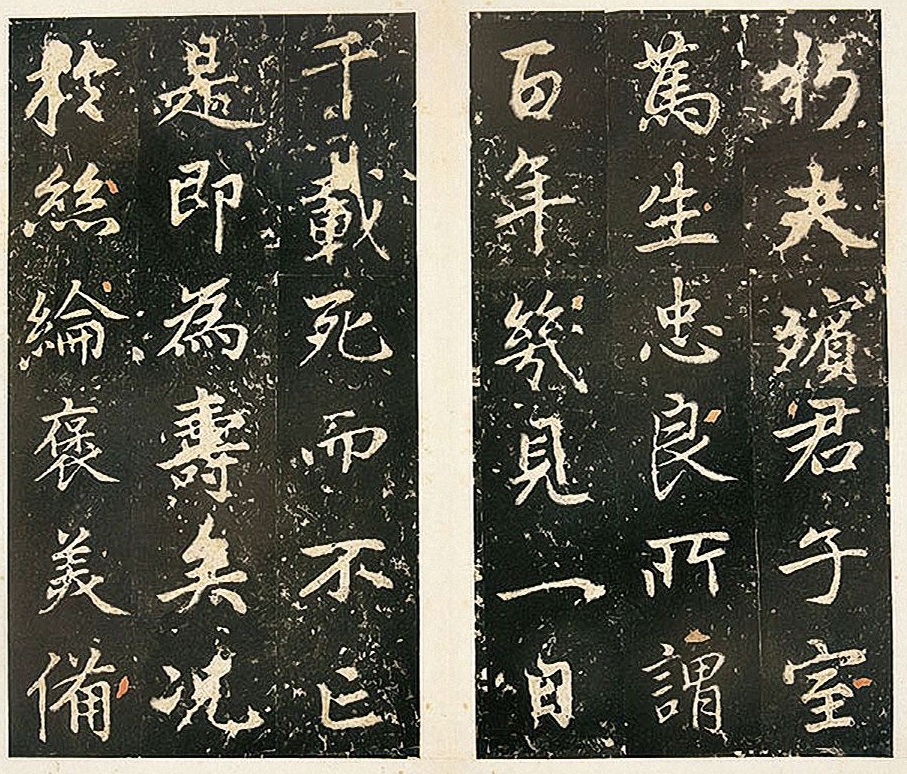 朽夫殯君子室
篤生忠良所謂
百年幾見一日
千載死而不亡
是即為壽矣况
於絲綸褒美備